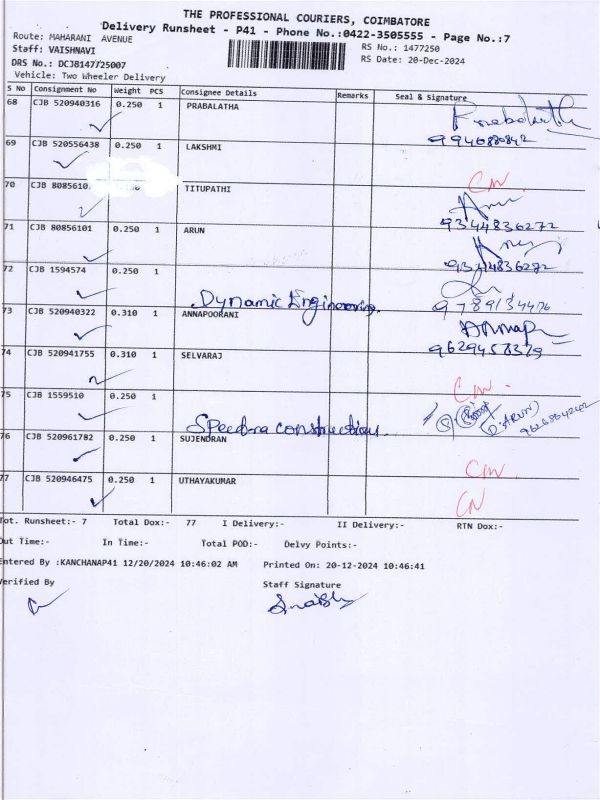 THE PROFESSIONAL COURIERS, COIMBATORE
Delivery Runsheet - P41 - Phone No.:0422-3505555 - Page No.:7
Route: MAHARANI AVENUE RS No.: 1477250
Staff: VAISHNAVI RS Date: 20-Dec-2024
DRS No.: DCJB147725007
Vehicle: Two Wheeler Delivery
S No Consignment No Weight PCS Consignee Details Remarks Seal & Signature
68 CJB 520940316 0.250 1 PRABALATHA
69 CJB 520556438 0.250 1 LAKSHMI CN
70 CJB 8085610 1 TITUPATHI
9344836272
71 CJB 80856101 0.250 1 ARUN
9344836272
72 CJB 1594574 0.250 1
Dynamic Engineering. 9789134476
73 CJB 520940322 0.310 1 ANNAPOORANI
9629458379
74 CJB 520941755 0.310 1 SELVARAJ CN.
75 CJB 1559510 0.250 1
(D.ARUN)
76 CJB 520961782 0.250 1 SUJENDRAN CN
77 CJB 520946475 0.250 1 UTHAYAKUMAR CN
Tot. Runsheet:- 7 Total Dox:- 77 I Delivery:- II Delivery:- RTN Dox:-
Out Time:- In Time:- Total POD:- Delvy Points:-
Entered By :KANCHANAP41 12/20/2024 10:46:02 AM Printed On: 20-12-2024 10:46:41
Verified By Staff Signature